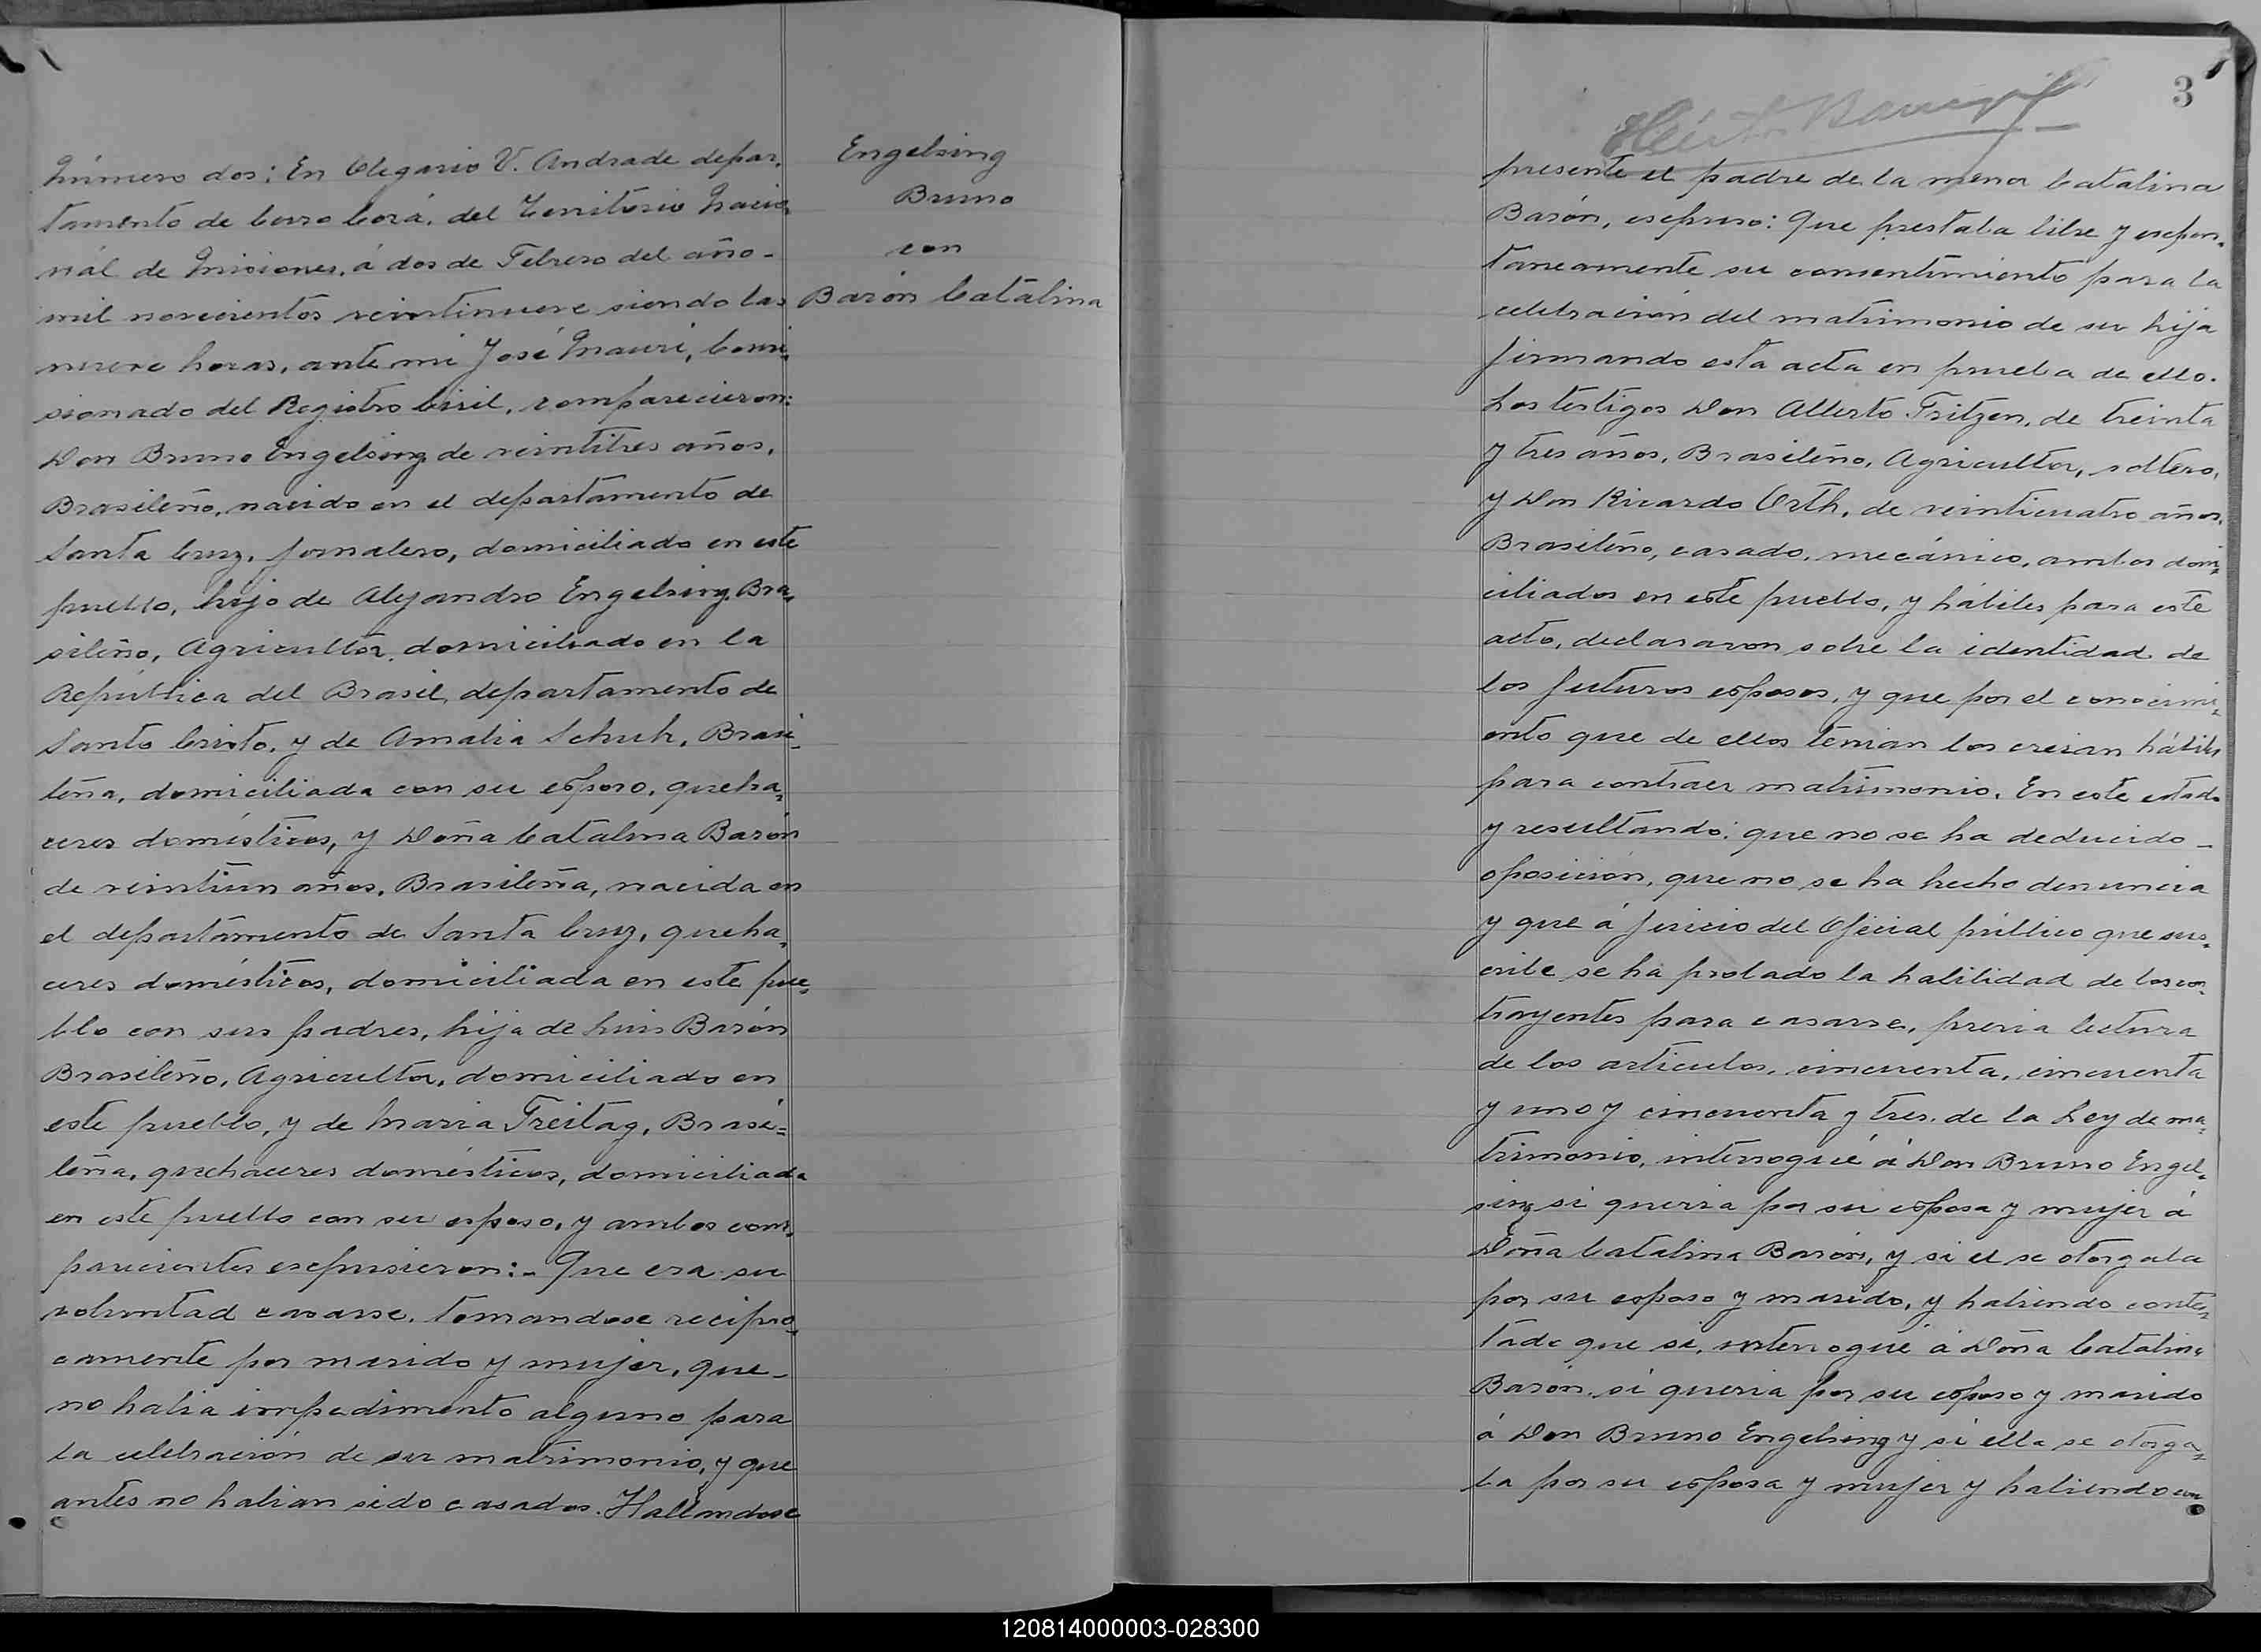 Número dos: En Olegario V. Andrade depar-
tamento de Cerro Corá, del Territorio Nacio-
nál de Misiones, á dos de Febrero del año -
mil novecientos veintinueve siendo las
nueve horas, ante mi José Mauri, Comi-
sionado del Registro Civil, comparecieron:
Don Bruno Engelsing de veintitres años,
Brasileño, nacido en el departamento de
Santa Cruz, jornalero, domiciliado en este
pueblo, hijo de Alejandro Engelsing, Bra-
sileño, Agricultor, domiciliado en la
República del Brasil, departamento de
Santo Cristo, y de Amalia Schuh, Brasi-
leña, domiciliada con su esposo, queha-
ceres domésticos, y Doña Catalina Barón
de veintiun años, Brasileña, nacida en
el departamento de Santa Cruz, queha-
ceres domésticos, domiciliada en este pue-
blo con sus padres, hija de Luis Barón
Brasileño, Agricultor, domiciliado en
este pueblo, y de Maria Freitag, Brasi=
leña, quehaceres domésticos, domiciliada
en este pueblo con su esposo, y ambos com-
parecientes escpusieron:- Que era su
voluntad casarse, tomandose recipro-
camente por marido y mujer, que -
no habia impedimento alguno para
la celebración de su matrimonio, y que
antes no habian sido casados. Hallandose
Engelsing
Bruno
con
Barón Catalina
3
presente el padre de la menor Catalina
Barón, escpuso: Que prestaba libre y escpon-
taneamente su consentimiento para la
celebración del matrimonio de su hija
firmando esta acta en prueba de ello.
Los testigos Don Alberto Fritzen, de treinta
y tres años, Brasileño, Agricultor, soltero,
y Don Ricardo Orth, de veinticuatro años,
Brasileño, casado, mecánico, ambos domi-
ciliados en este pueblo, y hábiles para este
acto, declararon sobre la identidad de
los futuros esposos, y que por el conocimi-
ento que de ellos tenian los creian hábiles
para contraer matrimonio. En este estado
y resultando: que no se ha deducido -
oposición, que no se ha hecho denuncia
y que á juicio del Oficial público que sus-
cribe se ha probado la habilidad de los con-
trayentes para casarse, previa lectura
de los articulos, cincuenta, cincuenta
y uno y cincuenta y tres, de la Ley de ma-
trimonio, interrogué á Don Bruno Engel-
sing si queria por su esposa y mujer á
Doña Catalina Barón, y si el se otorgaba
por su esposo y marido, y habiendo contes-
tado que si, interrogué á Doña Catalina
Barón, si queria por su esposo y marido
á Don Bruno Engelsing y si ella se otorga-
ba por su esposa y mujer y habiendo con
120814000003-028300